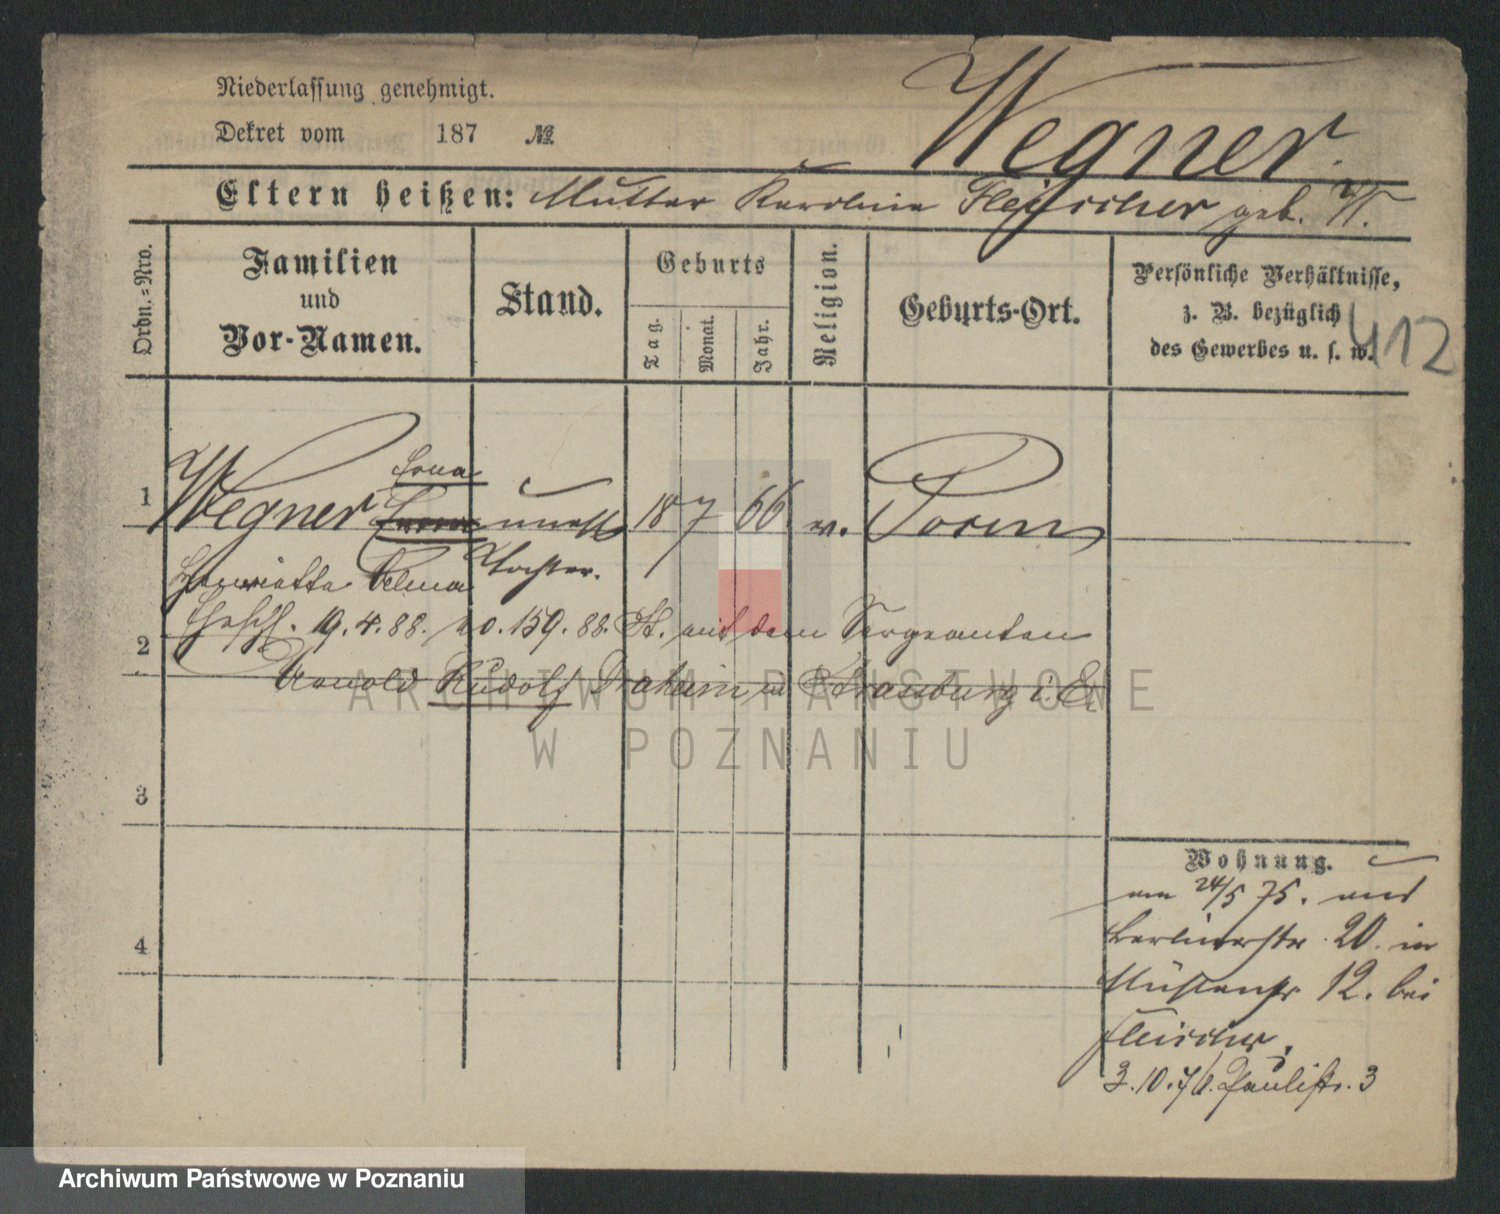 Niederlassung genehmigt.
Dekret vom 187 №
Wegner.
Eltern heißen: Mutter Karoline Fleischer geb. W.
Ordn.-Nro.
Familien und Vor-Namen.
Stand.
Geburts
Tag.
Monat.
Jahr.
Religion.
Geburts-Ort.
Persönliche Verhältnisse,
z. B. bezüglich
des Gewerbes u. s. w.
412
1
Erna
Wegner unehl 18 7 66. ev. Posen
Henriette Selma Tochter.
2
Ehesch. 19.4.88. No. 159.88. St. mit dem Sergeanten
Arnold Rudolf Draheim in Strassburg i. E.
3
4
Wohnung.
am 24/5 75. aus
Berlinerstr. 20. in
12. bei
Fleischer.
3.10.76. Paulistr. 3
ARCHIWUM PAŃSTWOWE
W POZNANIU
Archiwum Państwowe w Poznaniu